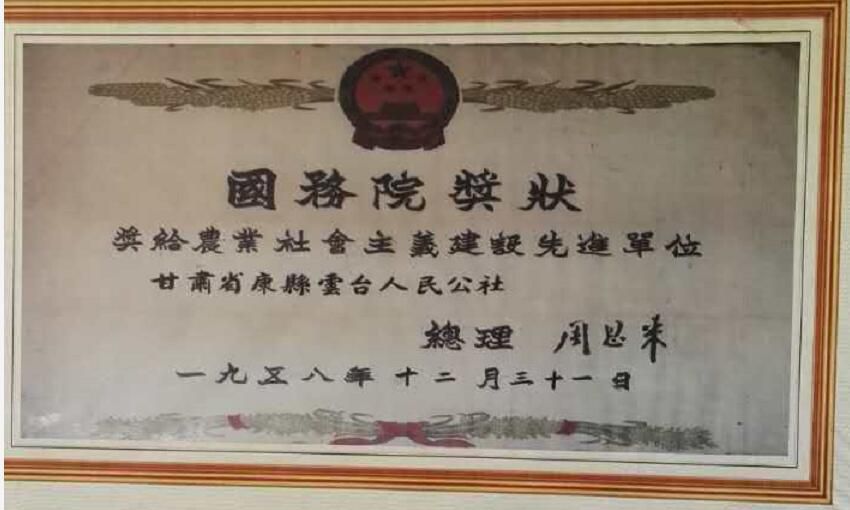 國務院獎狀
獎給農業社會主義建設先進單位
甘肅省康縣雲台人民公社
總理 周恩来
一九五八年十二月三十一日